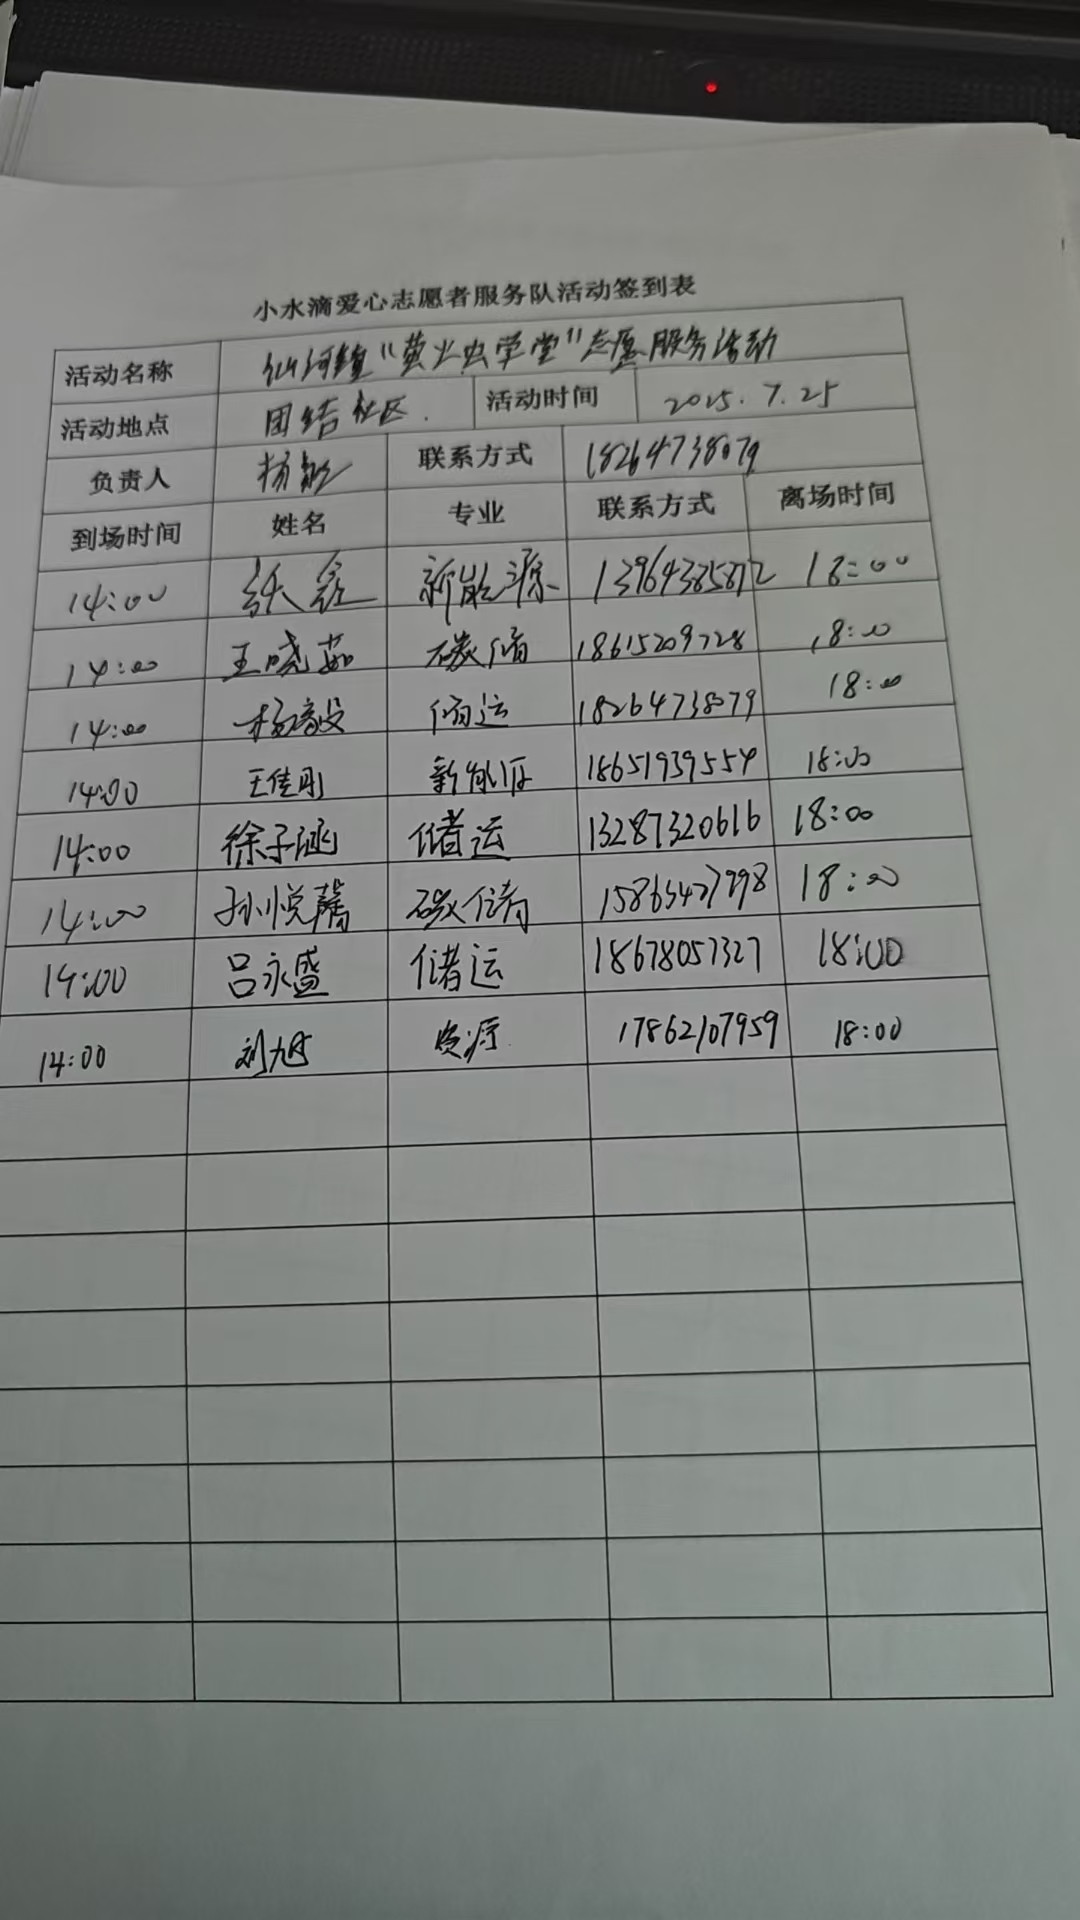 小水滴爱心志愿者服务队活动签到表
活动名称 仙河镇“萤火虫学堂”志愿服务活动
活动地点 团结社区. 活动时间 2025.7.25
负责人 杨毅 联系方式 18264738079
到场时间 姓名 专业 联系方式 离场时间
14:00 张鑫 新能源 13964385872 18:00
14:00 王晓茹 碳储 18615209728 18:00
14:00 杨毅 储运 18264738079 18:00
14:00 王佳刚 新能源 18651939554 18:00
14:00 徐子涵 储运 13287320616 18:00
14:00 孙悦馨 碳储 18:00
14:00 吕永盛 储运 18678057327 18:00
14:00 刘旭 资源 17862107959 18:00